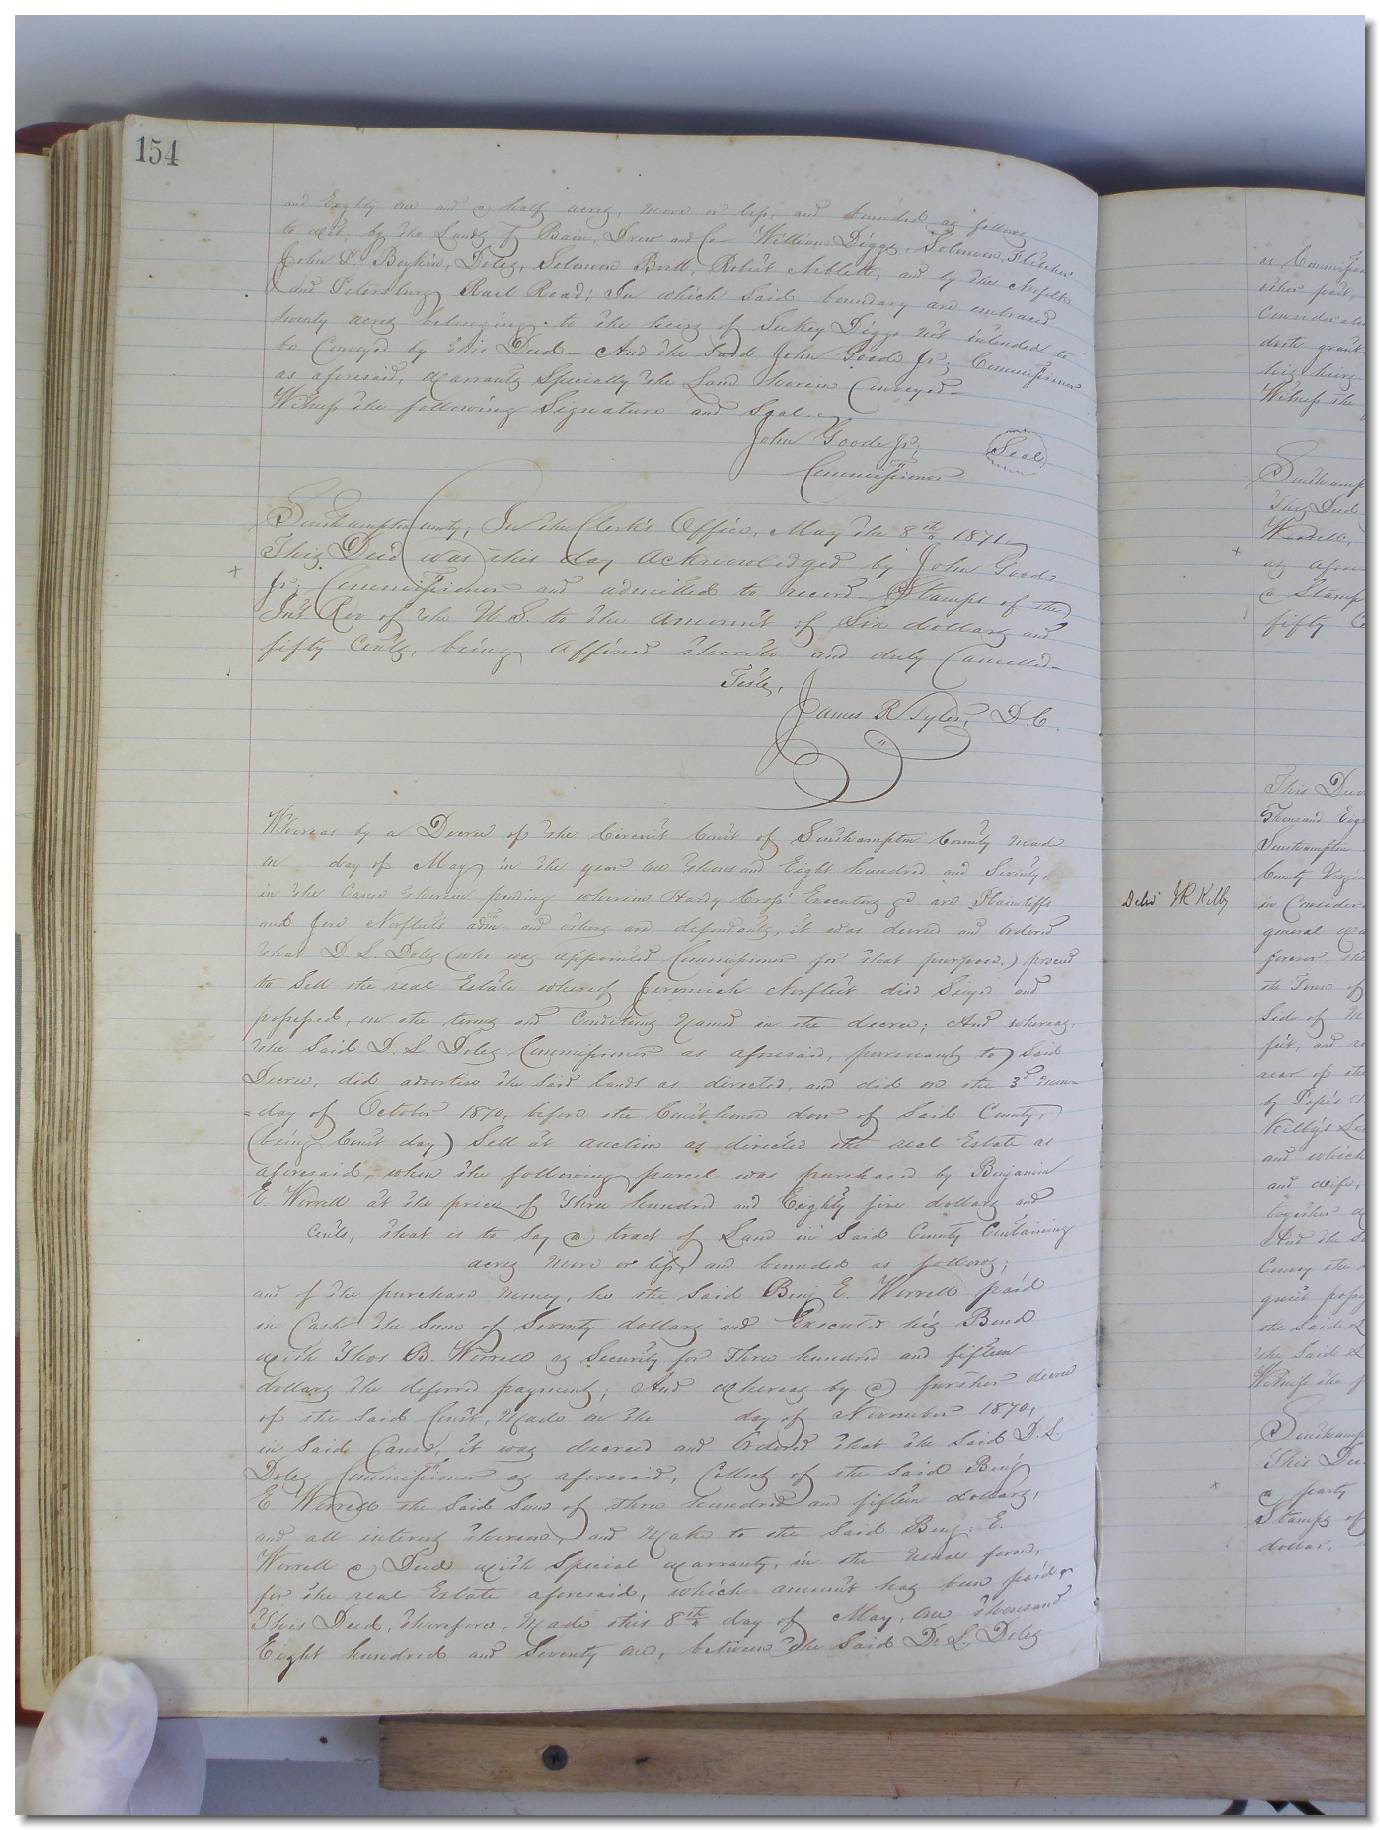 154
and Eighty one and a half acres, more or less, and bounded as follows
to wit, by the Lands of Bain, Drew and Co- William Diggs, Solomon Fletcher
John D. Boykin, Doles, Solomon Britt, Robert Niblett, and by the Norfolk
and Petersburg Rail Road; In which said boundary are embraced
twenty acres belonging to the heirs of Suckey Diggs not intended to
be Conveyed by this Deed - And the said John Goode Jr; Commissioner
as aforesaid, warrants Specially the Land herein Conveyed-
Witness the following Signature and Seal-
John Goode Jr; Seal
Commissioner
Southampton County, In the Clerk's Office, May the 8th 1871-
This Deed was this day acknowledged by John Goode
Jr; Commissioner and admitted to record- Stamps of the
Int Rev of the U.S. to the amount of Six dollars and
fifty Cents, being affixed thereto and duly Cancelled-
Teste,
James R Tyler, D.C.
Whereas by a Decree of the Circuit Court of Southampton County made
on day of May in the year one thousand Eight hundred and Seventy,
in the Cause therein pending wherein Hardy Cross' Executors &c are Plaintiffs
and Jere Norfleets adm and others are defendants, it was decreed and Ordered
that D. L. Doles (who was appointed Commissioner for that purpose,) proceed
to Sell the real Estate whereof Jeremiah Norfleet died Seized and
possessed, on the terms and Conditions Named in the decree; And whereas,
the Said D. L. Doles Commissioner as aforesaid, pursuant to Said
Decree, did advertise the Said lands as directed, and did on the 3d mon=
=day of October 1870, before the Courthouse door of Said County,
(being Court day) Sell at auction as directed the real Estate as
aforesaid, when the following parcel was purchased by Benjamin
E Worrell at the price of Three hundred and Eighty five dollars and
Cents, that is to Say a tract of Land in Said County Containing
acres More or less, and bounded as follows;
and of the purchase money, he the Said Benj E. Worrell paid
in Cash the Sum of Seventy dollars and Executed his Bond
with Thos B. Worrell as Security for Three hundred and fifteen
dollars the deferred payment; And whereas by a further decree
of the Said Court, Made on the day of November 1870,
in Said Cause, it was decreed and Ordered that the Said D. L.
Doles Commissioner as aforesaid, Collect of the Said Benj
E Worrell the Said Sum of Three hundred and fifteen dollars,
and all interest thereon, and Make to the Said Benj: E.
Worrell a Deed with Special warranty, in the usual form,
for the real Estate aforesaid, which amount has been paid,
This Deed, therefore, Made this 8th day of May, One thousand
Eight hundred and Seventy one, between the Said D. L. Doles
Delivd JR Kilby
as
other part,
heirs
Witness the
This Deed
Worrell,
as
a Stamp
fifty
This Deed
thousand
Southampton
County
in
general
forever
the Town of
Side of
feet, and
rear of the
by Pope's
Kilby's
and which
and wife,
together
And the
Convey the
quiet
the Said
the Said
Witness the
This Deed
a party
Stamps of
dollar,